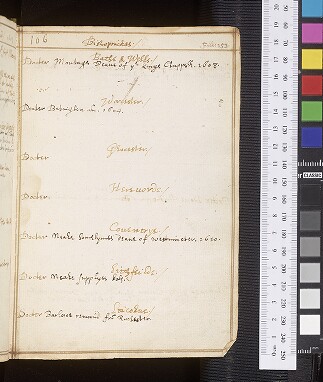 106
Bishoprickes.
Bathe & Wells.
Doctor Montague Deane of ye kings Chappell. 1608.
Worcester.
Doctor Babington in.
Glocester.
Doctor
Hereforde.
Doctor.
Coventrye
Doctor Neale sometymes Deane of westminster. 1610.
Litchfeilde
Doctor Neale supplyes
Lincolne.
Doctor Barlowe remoued from Rochester